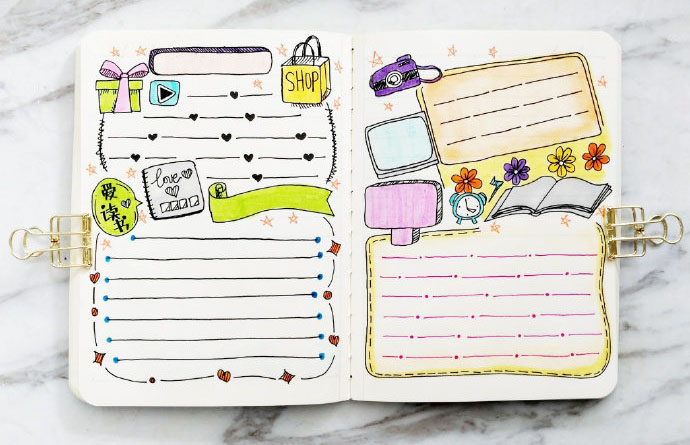 SHOP
love
爱
读
书